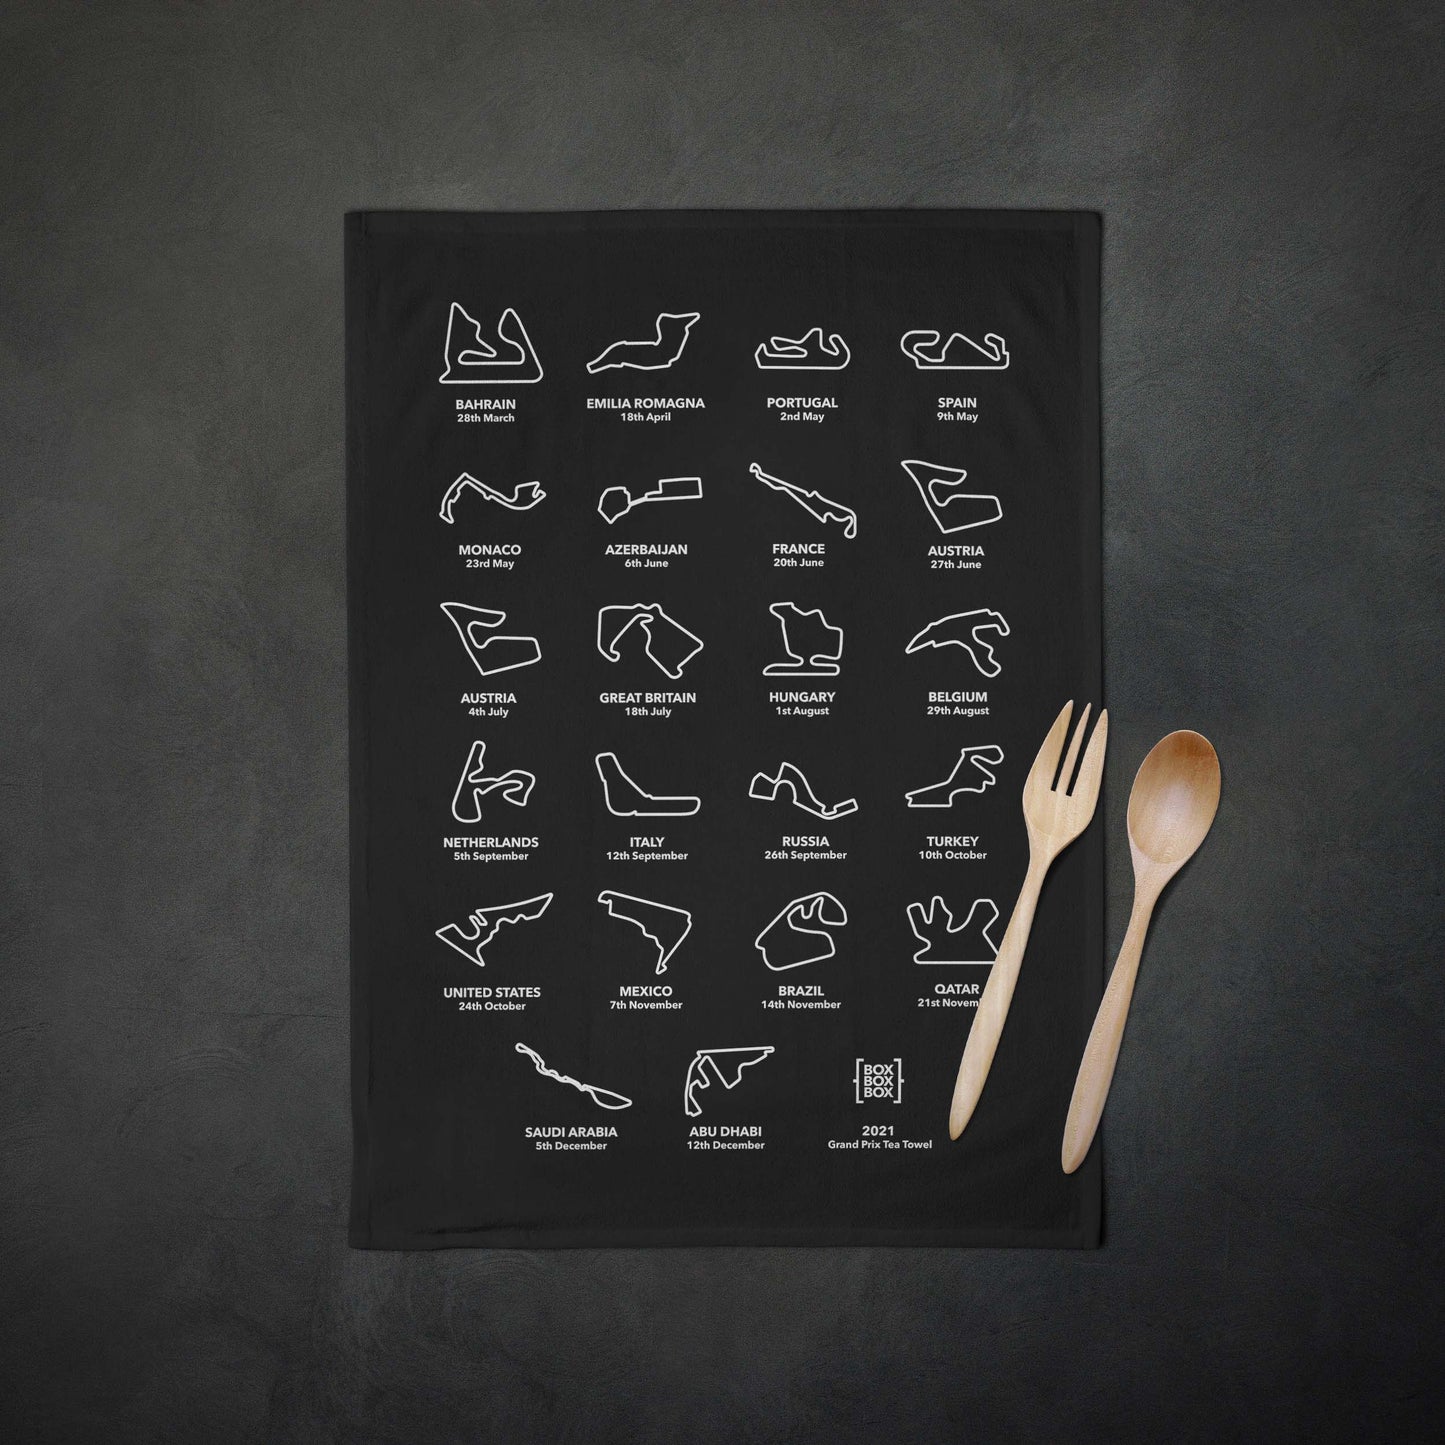 BAHRAIN
28th March
EMILIA ROMAGNA
18th April
PORTUGAL
2nd May
SPAIN
9th May
MONACO
23rd May
AZERBAIJAN
6th June
FRANCE
20th June
AUSTRIA
27th June
AUSTRIA
4th July
GREAT BRITAIN
18th July
HUNGARY
1st August
BELGIUM
29th August
NETHERLANDS
5th September
ITALY
12th September
RUSSIA
26th September
TURKEY
10th October
UNITED STATES
24th October
MEXICO
7th November
BRAZIL
14th November
QATAR
21st Novem
SAUDI ARABIA
5th December
ABU DHABI
12th December
BOX
BOX
BOX
2021
Grand Prix Tea Towel